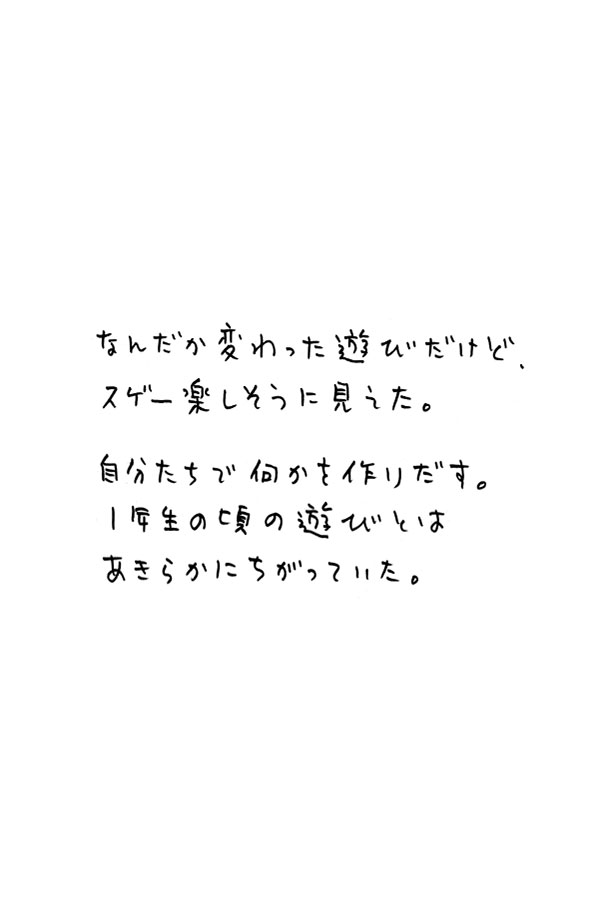 なんだか変わった遊びだけど、
スゲー楽しそうに見えた。
自分たちで何かを作りだす。
1年生の頃の遊びとは
あきらかにちがっていた。